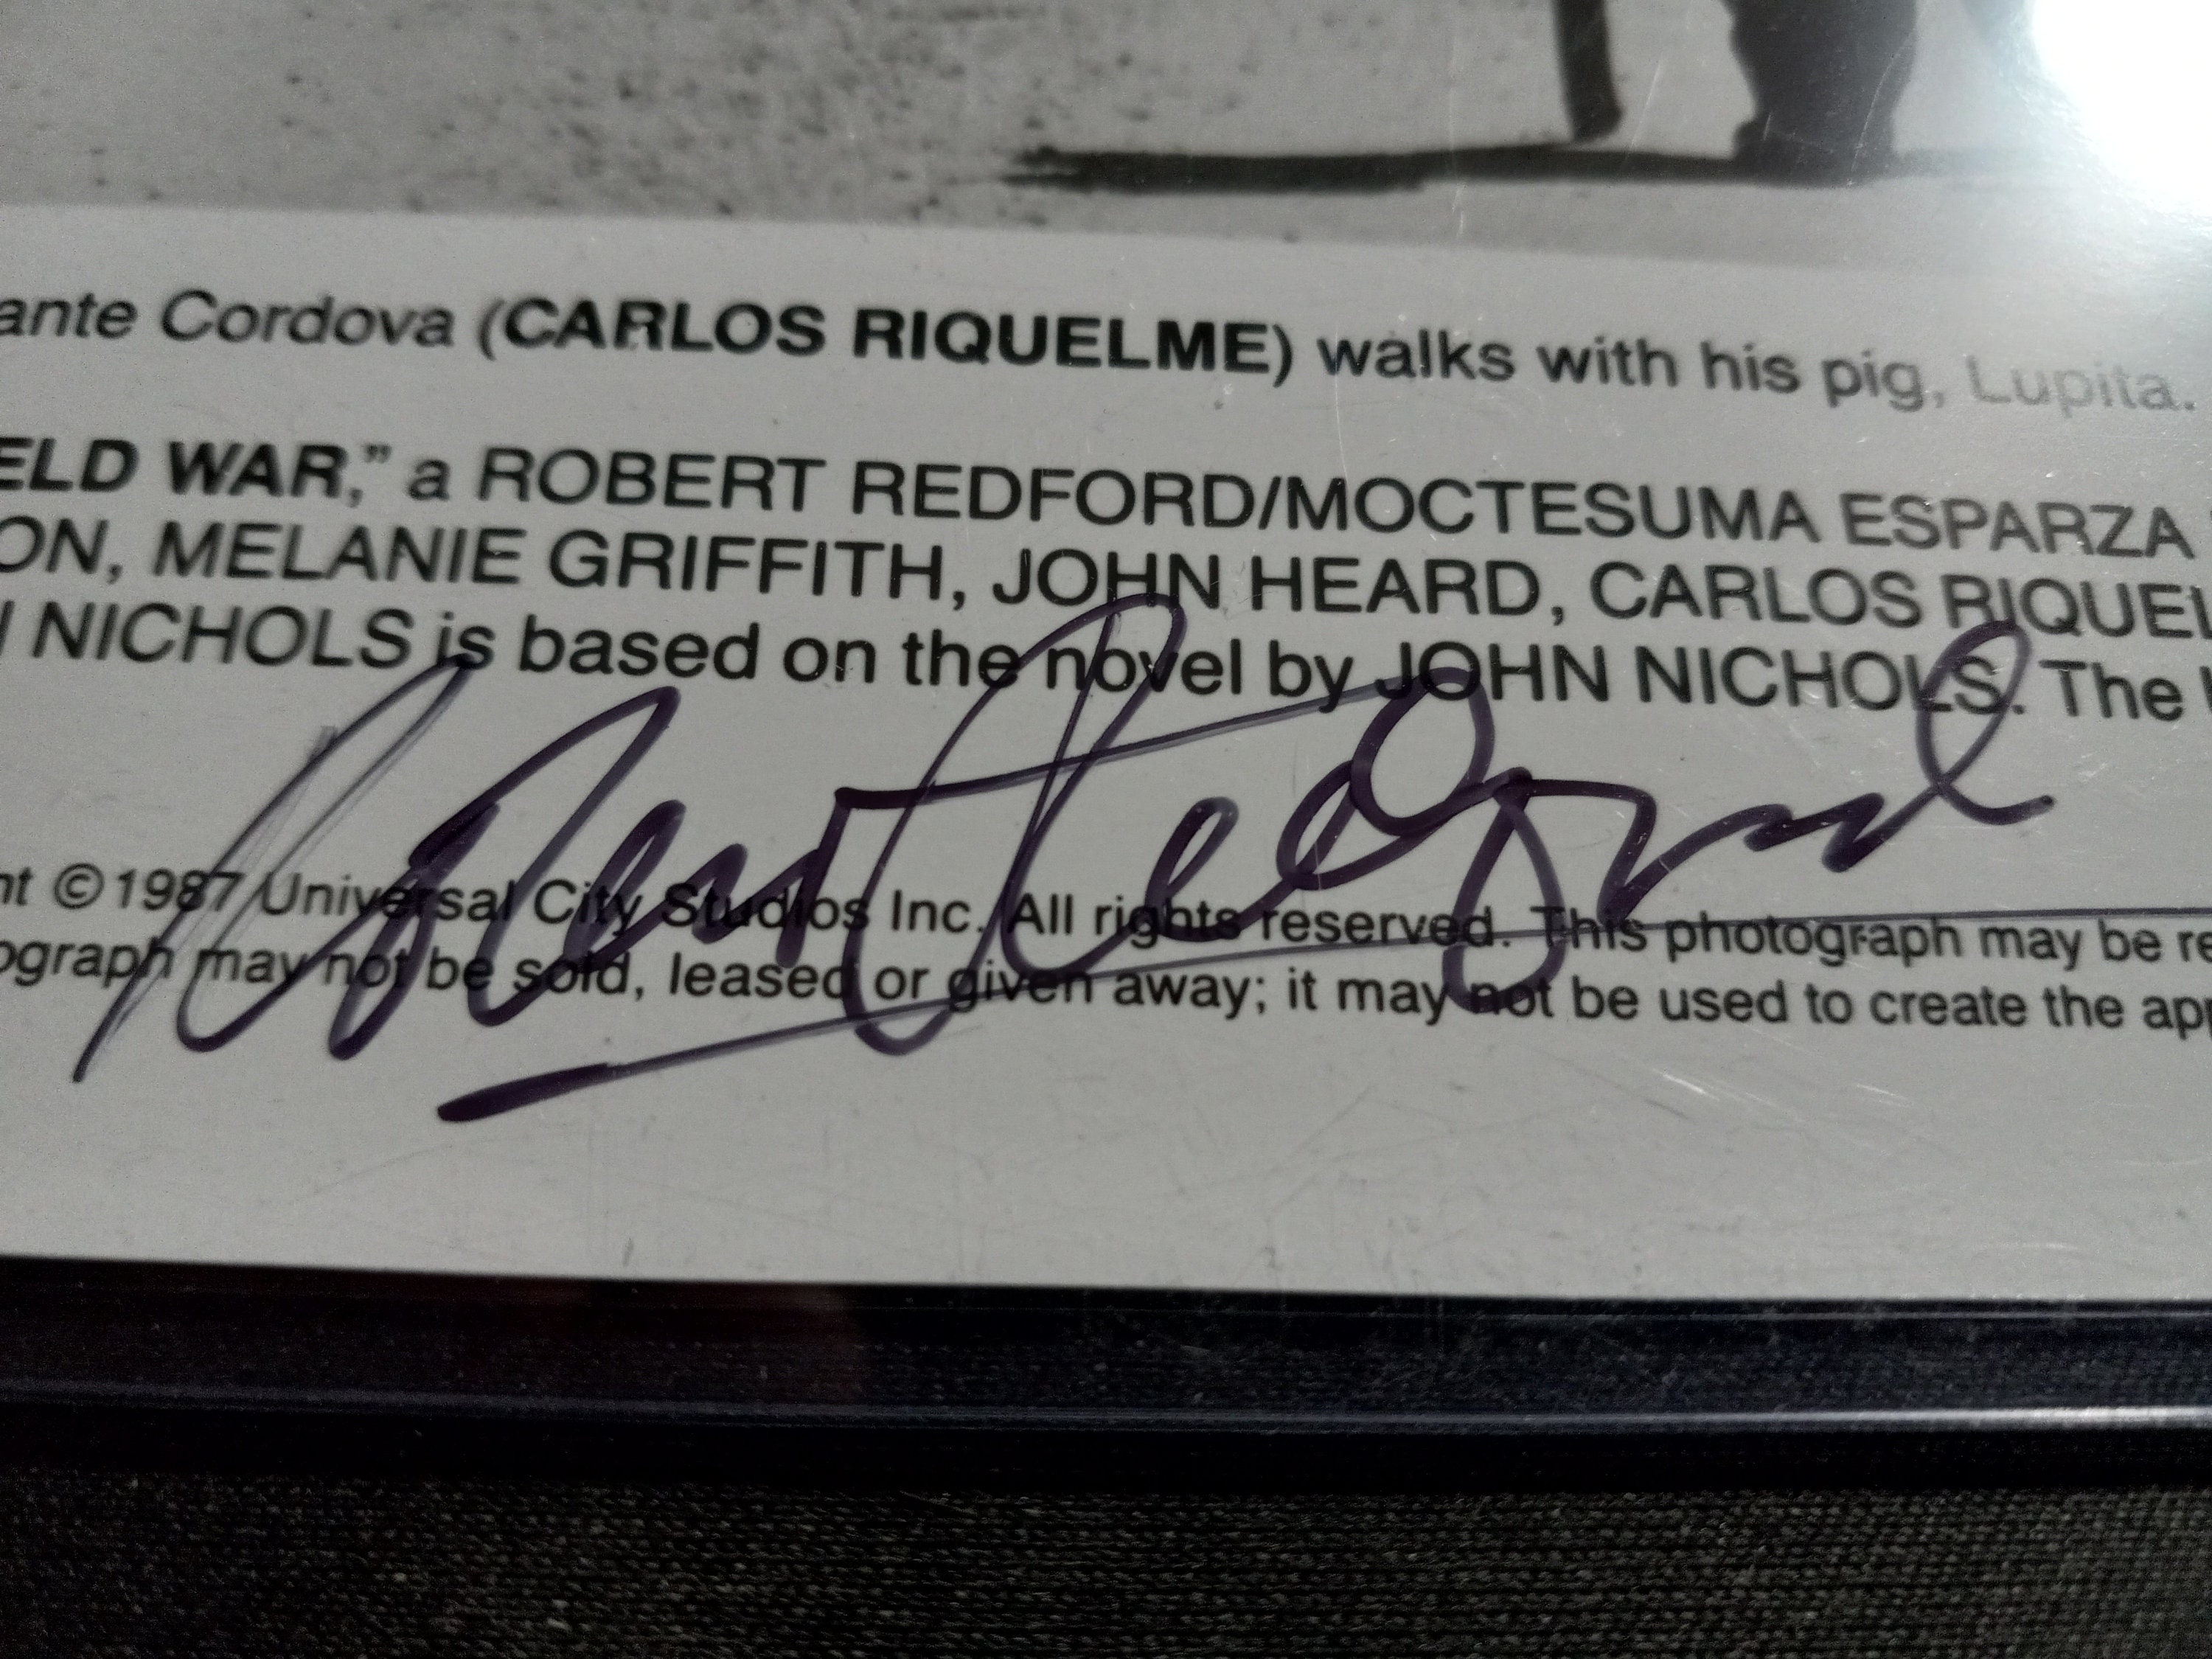 ante Cordova (CARLOS RIQUELME) walks with his pig, Lupita.
ELD WAR," a ROBERT REDFORD/MOCTESUMA ESPARZA
ON, MELANIE GRIFFITH, JOHN HEARD, CARLOS RIQUEL
NICHOLS is based on the novel by JOHN NICHOLS. The
Robert Redford
nt ©1987 Universal City Studios Inc. All rights reserved. This photograph may be re
ograph may not be sold, leased or given away; it may not be used to create the app